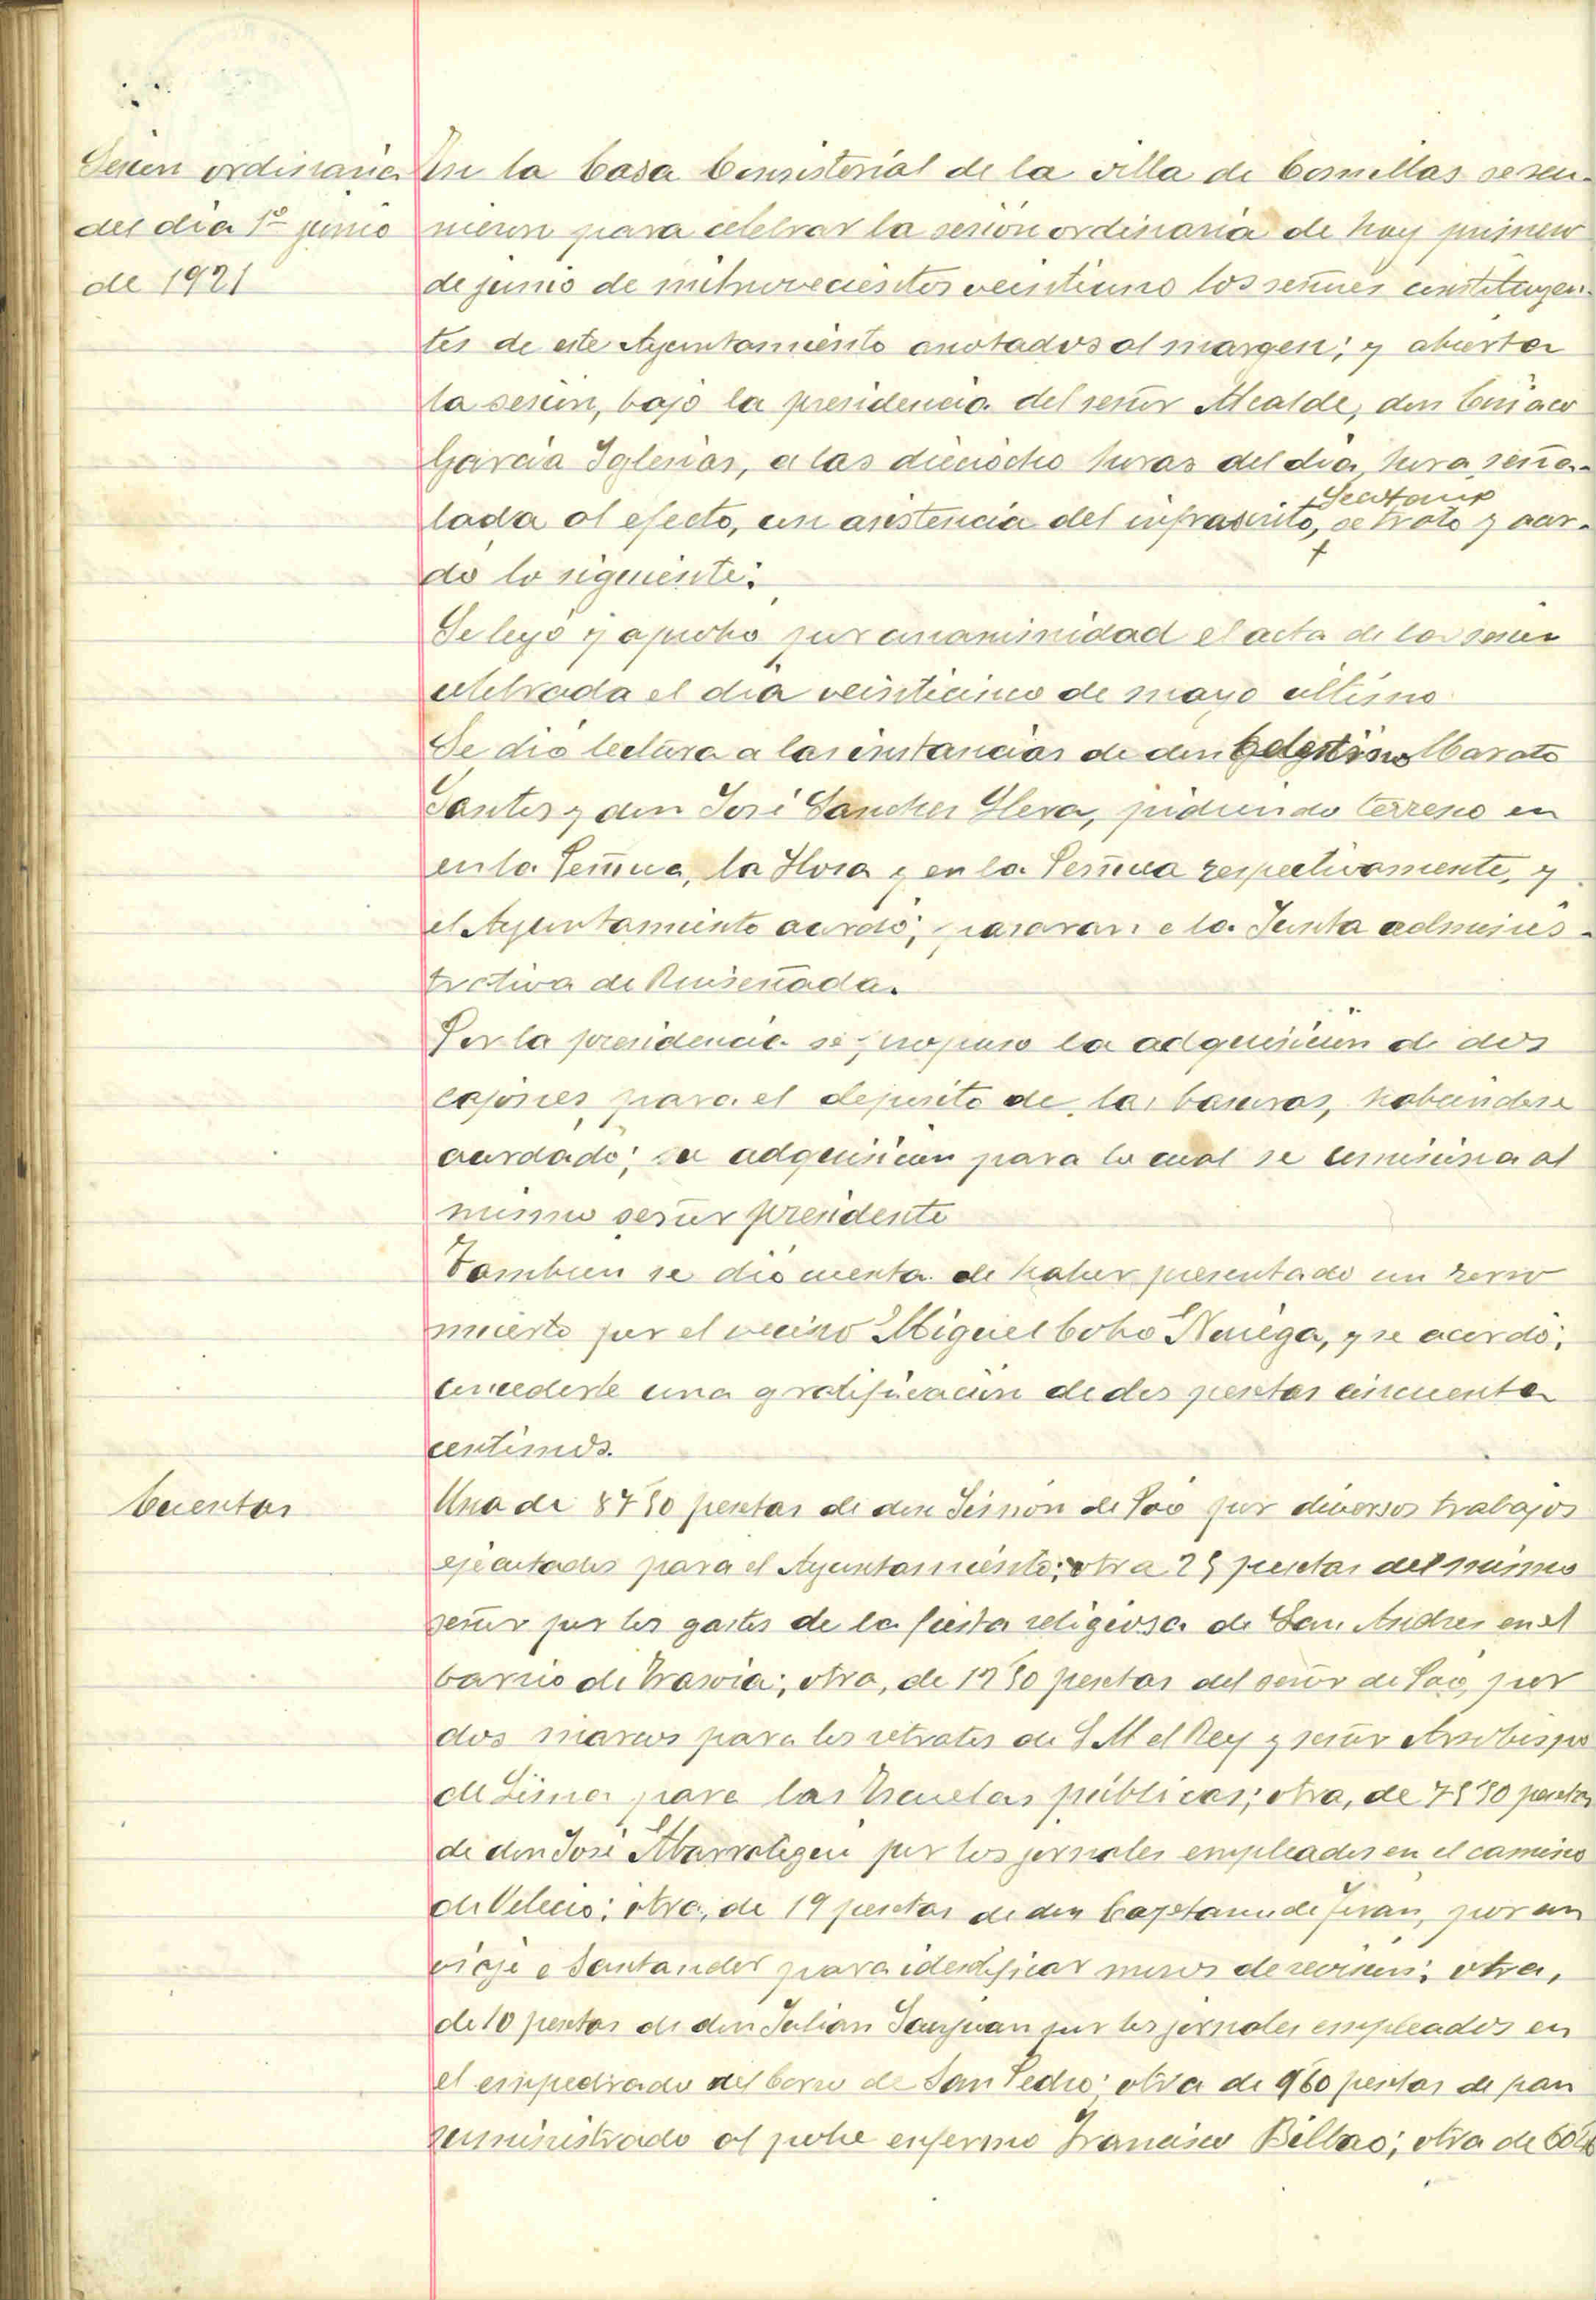 Sesion ordinaria
del dia 1º junio
de 1921
En la Casa Consistorial de la villa de Comillas se reu-
nieron para celebrar la sesion ordinaria de hoy primero
de junio de mil novecientos veintiuno los señores constituyen-
tes de este Ayuntamiento anotados al margen; y abierta
la sesion, bajo la presidencia del señor Alcalde, don Ciriaco
Garcia Iglesias, a las dieciocho horas del dia, hora seña-
Secretario
lada al efecto, con asistencia del infrascrito, se trato y acor-
dó lo siguiente:
Se leyó y aprobó por unanimidad el acta de la sesion
celebrada el dia veinticinco de mayo ultimo
Se dió lectura a las instancias de don Celestino
Santos y don José Sanchez pidiendo terreno en
en la la y en la respectivamente, y
el Ayuntamiento acordó; pasaran a la Junta adminis-
trativa de Ruiseñada.
Por la presidencia se propuso la adquisicion de dos
cajones para el deposito de las basuras, habiendose
acordado; su adquisicion para lo cual se comisiona al
mismo señor presidente
Tambien se dió cuenta de haber presentado un zorro
muerto por el vecino Miguel Cobo Noriega, y se acordó;
concederle una gratificacion de dos pesetas cincuenta
centimos.
Cuentas
Una de pesetas de don Simón de Poo por diversos trabajos
ejecutados para el Ayuntamiento; otra 25 pesetas del mismo
señor por los gastos de la fiesta religiosa de San Andres en el
barrio de Trasvia; otra, de pesetas del señor de Poo, por
dos marcos para los retratos de S M el Rey y señor Arzobispo
de Lima para las Escuelas públicas; otra, de pesetas
de don José por los jornales empleados en el camino
de Velecio; otra, de 19 pesetas de don Cayetano de Teran, por un
viaje a Santander para identificar mozos de revision; otra,
de 10 pesetas de don Julian Sanjuan por los jornales empleados en
el empedrado del Corro de San Pedro; otra de 9 60 pesetas de pan
suministrado al pobre enfermo Francisco Bilbao; otra de